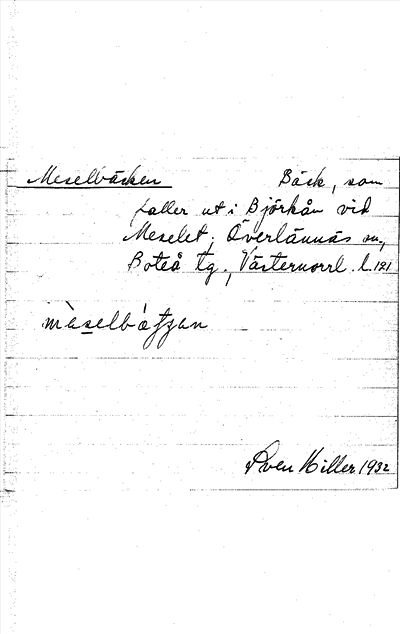 Meselbäcken Bäck, som
faller ut i Björkån vid
Meselet, Överlännäs sn,
Boteå tg., Västernorrl. l. 121
Sven Hiller 1932